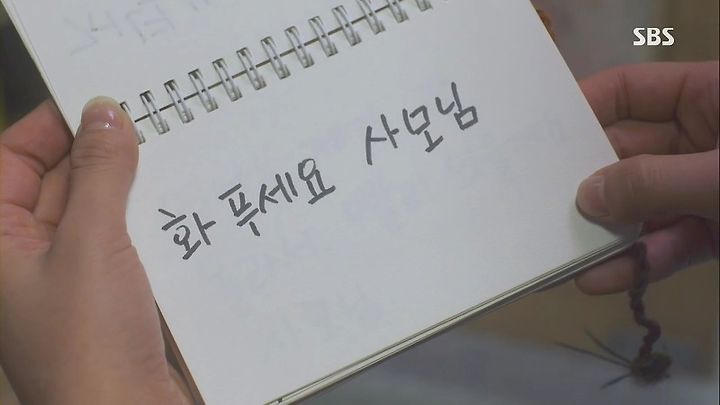 SBS
화 푸세요 사모님